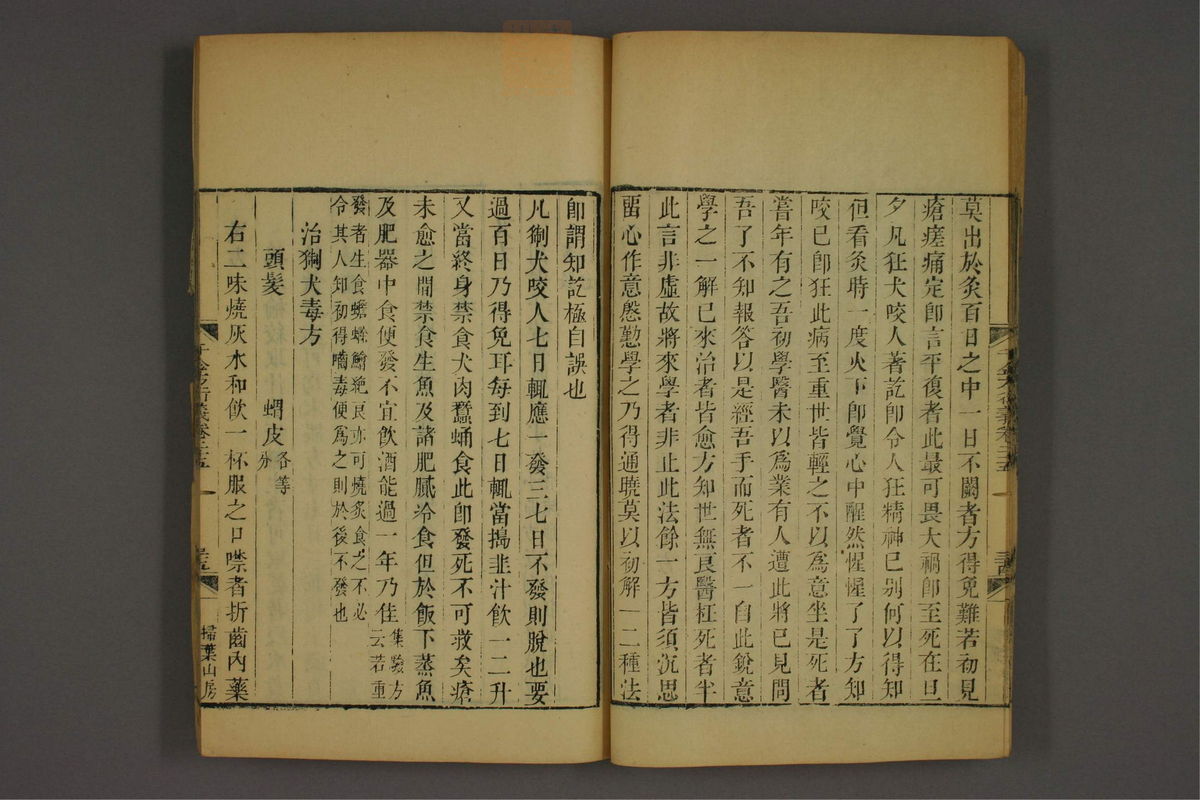 莫出於灸百日之中一日不闕者方得免難若初見
瘡瘥痛定卽言平復者此最可畏大禍卽至死在旦
夕凡狂犬咬人著訖卽令人狂精神已别何以得知
但看灸時一度火下卽覺心中醒然惺惺了了方知
咬已卽狂此病至重世皆輕之不以爲意坐是死者
嘗年有之吾初學醫未以爲業有人遭此將已見問
吾了不知報答以是經吾手而死者不一自此銳意
學之一解已來治者皆愈方知世無良醫枉死者半
此言非虛故將來學者非止此法餘一方皆須沉思
畱心作意慇懃學之乃得通曉莫以初解一二種法
千金方衍義卷二十五
掃葉山房
卽謂知訖極自誤也
凡猘犬咬人七日輒應一發三七日不發則脫也要
過百日乃得免耳每到七日輒當搗韭汁飮一二升
又當終身禁食犬肉蠶蛹食此卽發死不可救矣瘡
未愈之間禁食生魚及諸肥膩冷食但於飯下蒸魚
及肥器中食便發不宜飮酒能過一年乃佳集驗方云若重
發者生食蟾蜍鱠絶良亦可燒炙食之不必
令其人知初得嚙毒便爲之則於後不發也
治猘犬毒方
頭髮　蝟皮各等分
右二味燒灰水和飮一杯服之口噤者折齒內藥